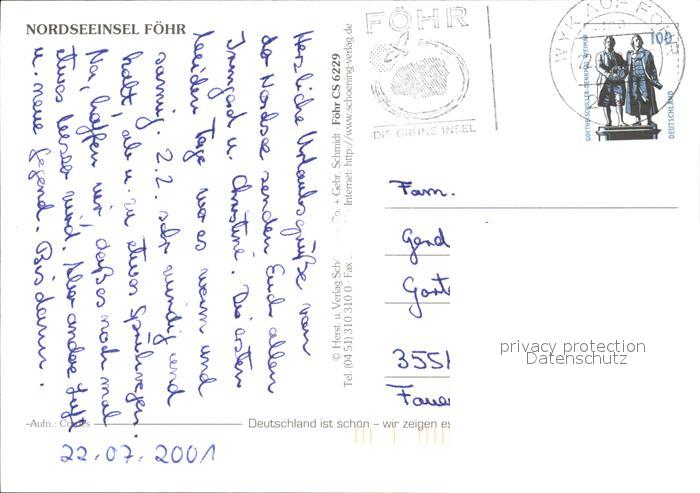 NORDSEEINSEL FÖHR
Herzliche Urlaubsgrüße von
der Nordsee senden Euch allen
Irmgard u. Christine. Die ersten
beiden Tage war es warm und
sonnig. Z.Z. sehr windig und
kalt, ab u. zu etwas Sprühregen.
Na, hoffen wir, daß es noch mal
etwas besser wird. Aber andere Luft
u. neue Gegend. Bis dann.
22.07.2001
-Aufn.:
Deutschland ist schön – wir zeigen es
© Herst. u. Verlag Sch
Co. + Gebr. Schmidt · Föhr CS 6229
Tel. (04 51) 310 310 0 · Fax
Internet: http://www.schoening-verlag.de
FÖHR
DIE GRÜNE INSEL
WYK AUF FÖHR
100
GOETHE-SCHILLER-DENKMAL WEIMAR
DEUTSCHLAND
Fam.
Gerd
Gart
355
privacy protection
Datenschutz